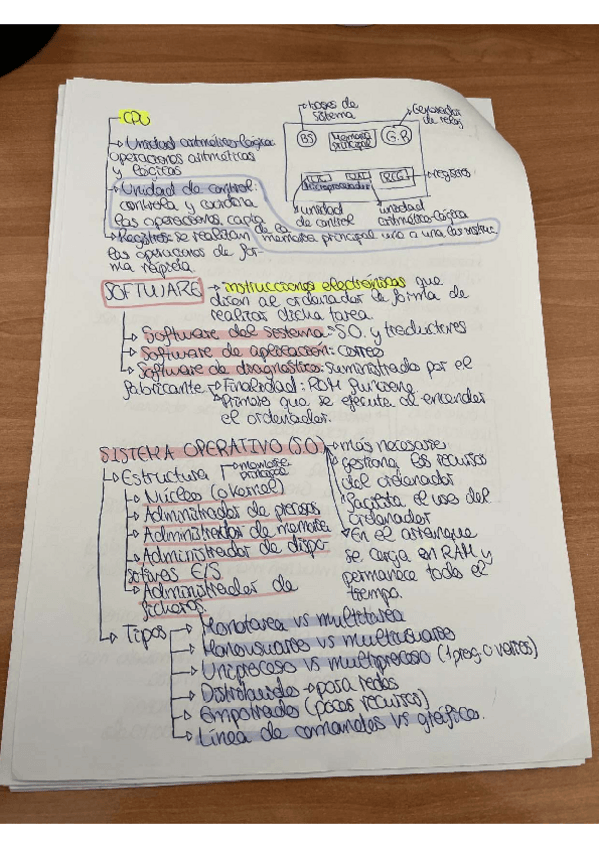 CPU
↳ Unidad aritmético-lógica:
operaciones aritméticas
y lógicas
↳ Unidad de control:
controla y coordina
las operaciones, capta
de la memoria principal una a una las instruc.
↳ Registros: se realizan
las operaciones de for-
ma rápida
Buses de
sistema
Generador
de reloj
BS
Memoria
principal
G.R
REG
Microprocesador
Registros
unidad
de control
unidad
aritmético-lógica
SOFTWARE → instrucciones electrónicas que
dicen al ordenador la forma de
realizar dicha tarea.
↳ Software del sistema: S.O. y traductores
↳ Software de aplicación: correo
↳ Software de diagnóstico: suministrado por el
fabricante → Finalidad: RAM funcione
↳ Primero que se ejecuta al encender
el ordenador.
SISTEMA OPERATIVO (S.O.)
→ más necesario
→ gestiona los recursos
del ordenador
facilita el uso del
ordenador
En el arranque
se carga en RAM y
permanece todo el
tiempo.
↳ Estructura
memoria
principal
↳ Núcleo (o kernel)
↳ Administrador de
↳ Administrador de memoria
↳ Administrador de dispo-
sitivos E/S
↳ Administrador de
ficheros
↳ Tipos
→ Monotarea vs multitarea
→ Monousuario vs multiusuario
→ Uniproceso vs multiproceso (1 proc. o varios)
→ Distribuidos → para redes
→ Empotrados (pocos recursos)
↳ Línea de comandos vs gráficos.